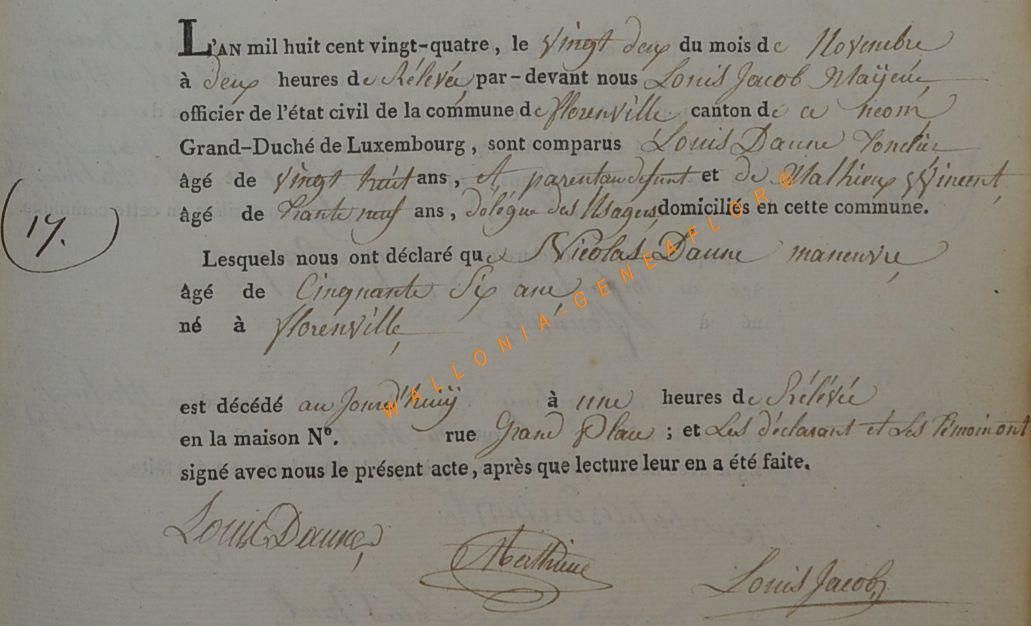 L'AN mil huit cent vingt-quatre, le Vingt deux du mois de Novembre
à deux heures de Rélévée, par-devant nous Louis Jacob Mayeur,
officier de l'état civil de la commune de florenville canton de ce nom
Grand-Duché de Luxembourg, sont comparus Louis Daune
âgé de Vingt huit ans, et parent au defunt et de Mathieu Vincent,
âgé de Trante neuf ans, des Usagers, domiciliés en cette commune.
17.
Lesquels nous ont déclaré que Nicolas Daune maneuvre,
âgé de Cinquante Six ans,
né à florenville,
est décédé au Jourd'huiÿ à une heures de Rélévée
en la maison N°. rue Grand Place ; et Les déclarant et Les Témoin ont
signé avec nous le présent acte, après que lecture leur en a été faite.
Louis Daune
Louis Jacob
WALLONIA-GENEAFLOR©